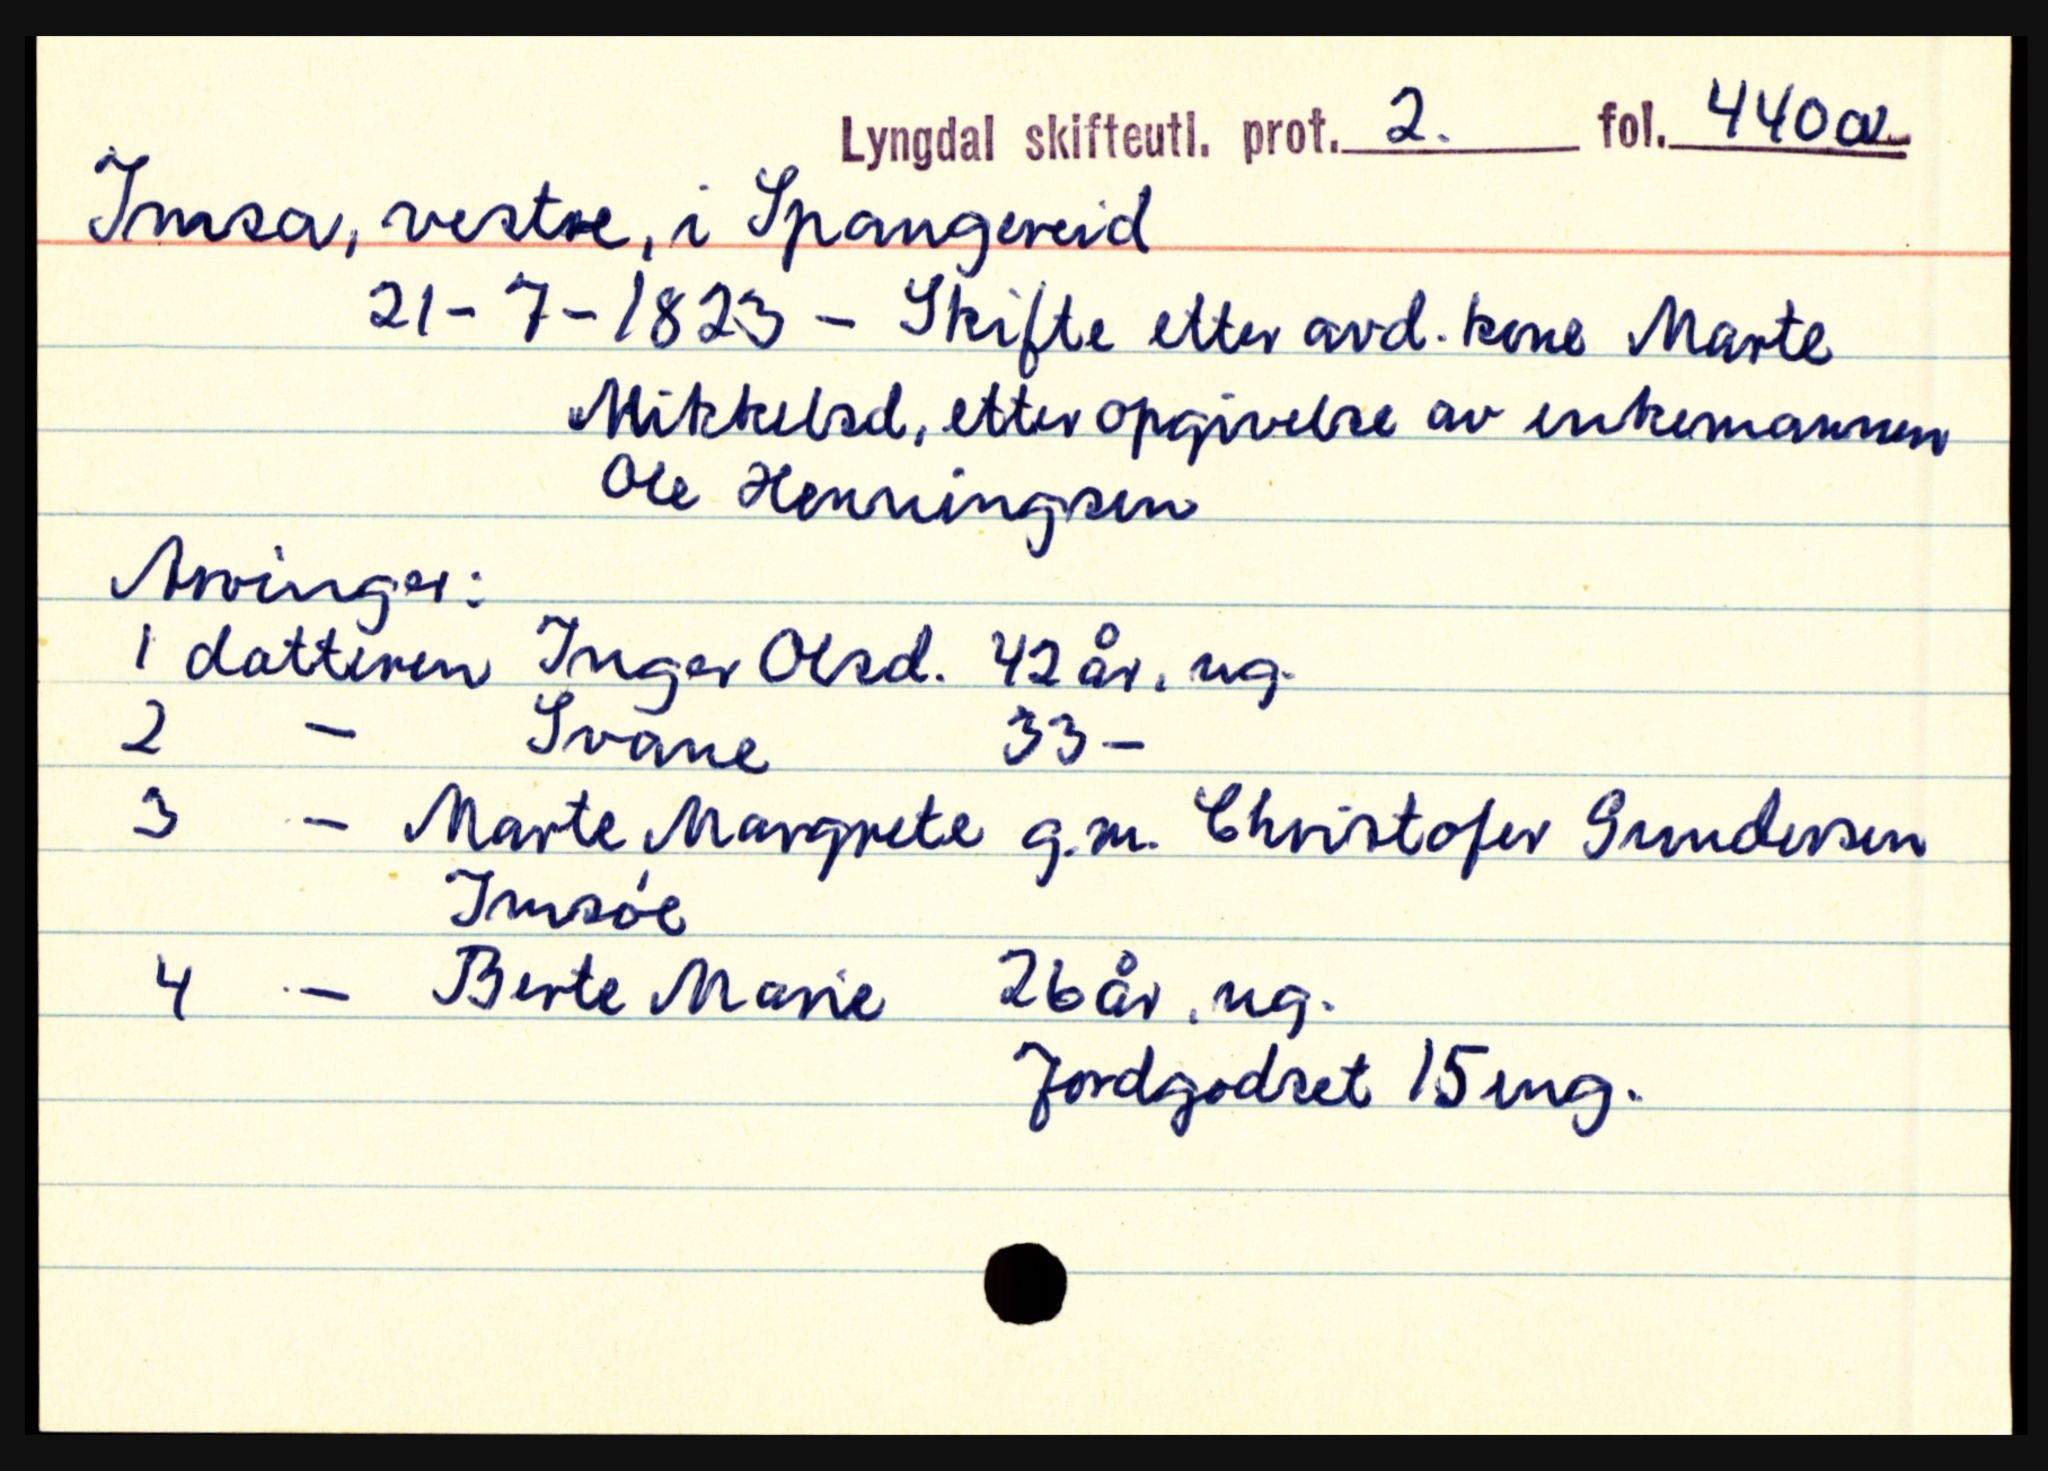 Lyngdal skifteutl. prot. 2. fol. 440a
Imsa, vestre, i Spangereid
21-7-1823 - Skifte etter avd. kone Marte
Mikkelsd, etter opgivelse av enkemannen
Ole Henningsen
Arvinger:
1 datteren Inger Olsd. 42 år, ug.
2 - Svane 33 -
3 - Marte Margrete g.m. Christofer Gundersen
Imsøe
4 - Berte Marie 26 år, ug.
Jordgodset 15 eng.